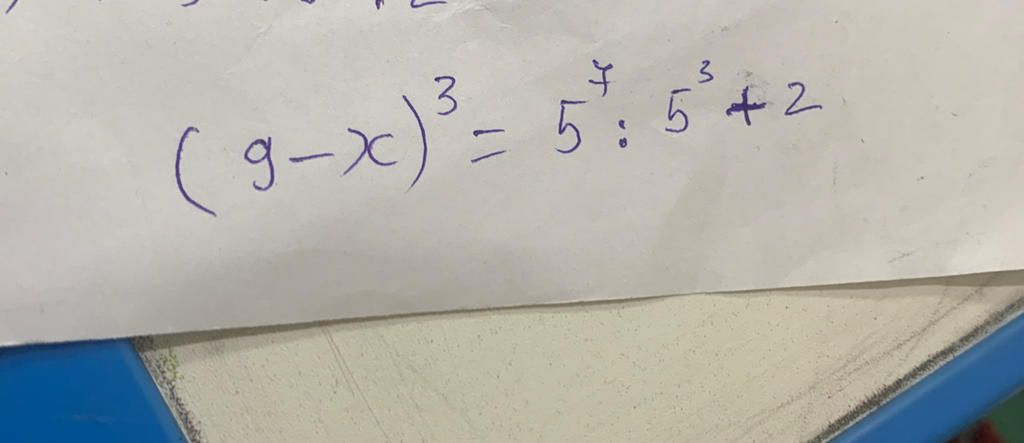 (9-x)³ = 5⁷ : 5³ + 2